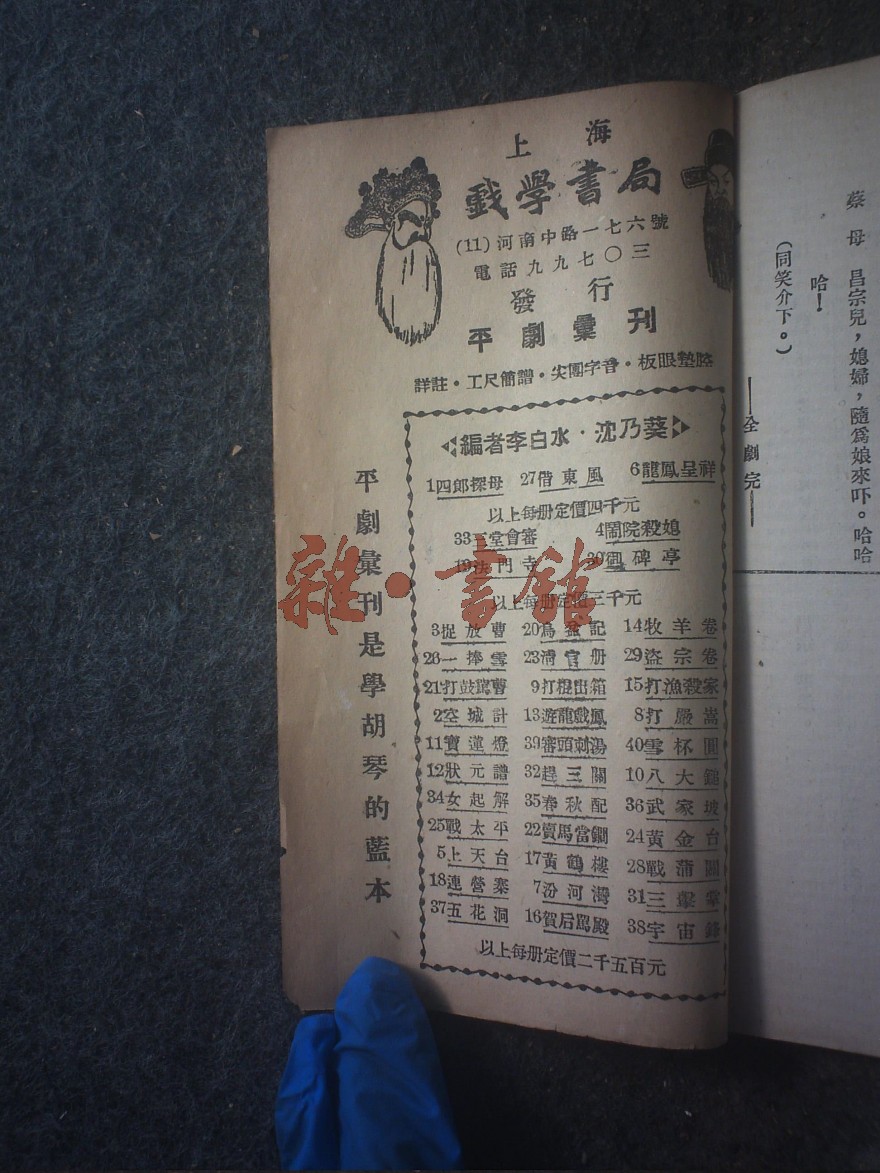 上海
戲學書局
(11)河南中路一七六號
電話九九七〇三
發行
平劇彙刊
詳註·工尺簡譜·尖團字音·板眼墊腔
編者李白水·沈乃葵
1四郎探母 27借東風 6龍鳳呈祥
以上每册定價四千元
33三堂會審 4鬧院殺媳
19法門寺 30御碑亭
以上每册定價三千元
3捉放曹 20烏盆記 14牧羊卷
26一捧雪 23清官册 29盜宗卷
21打鼓駡曹 9打棍出箱 15打漁殺家
2空城計 13遊龍戲鳳 8打嚴嵩
11寶蓮燈 39審頭刺湯 40雪杯圓
12狀元譜 32趕三關 10八大鎚
34女起解 35春秋配 36武家坡
25戰太平 22賣馬當鐧 24黃金台
5上天台 17黃鶴樓 28戰蒲關
18連營寨 7汾河灣 31三擊掌
37五花洞 16賀后駡殿 38宇宙鋒
以上每册定價二千五百元
平劇彙刊是學胡琴的藍本
蔡母 昌宗兒，媳婦，隨爲娘來吓。哈哈
哈！
（同笑介下。）
——全劇完——
雜·書館